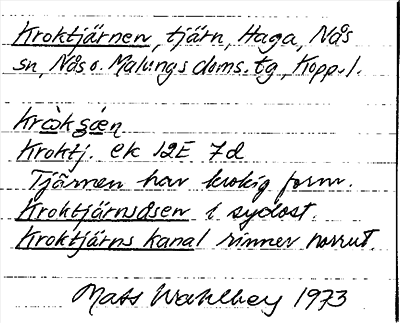 Kroktjärnen, tjärn, Haga, Nås
sn, Nås o. Malungs doms. tg, Kopp. l.
Kroktj. ek 12E 7d
Tjärnen har krokig form.
Kroktjärnsåsen i sydost.
Kroktjärns kanal rinner norrut.
Mats Wahlberg 1973